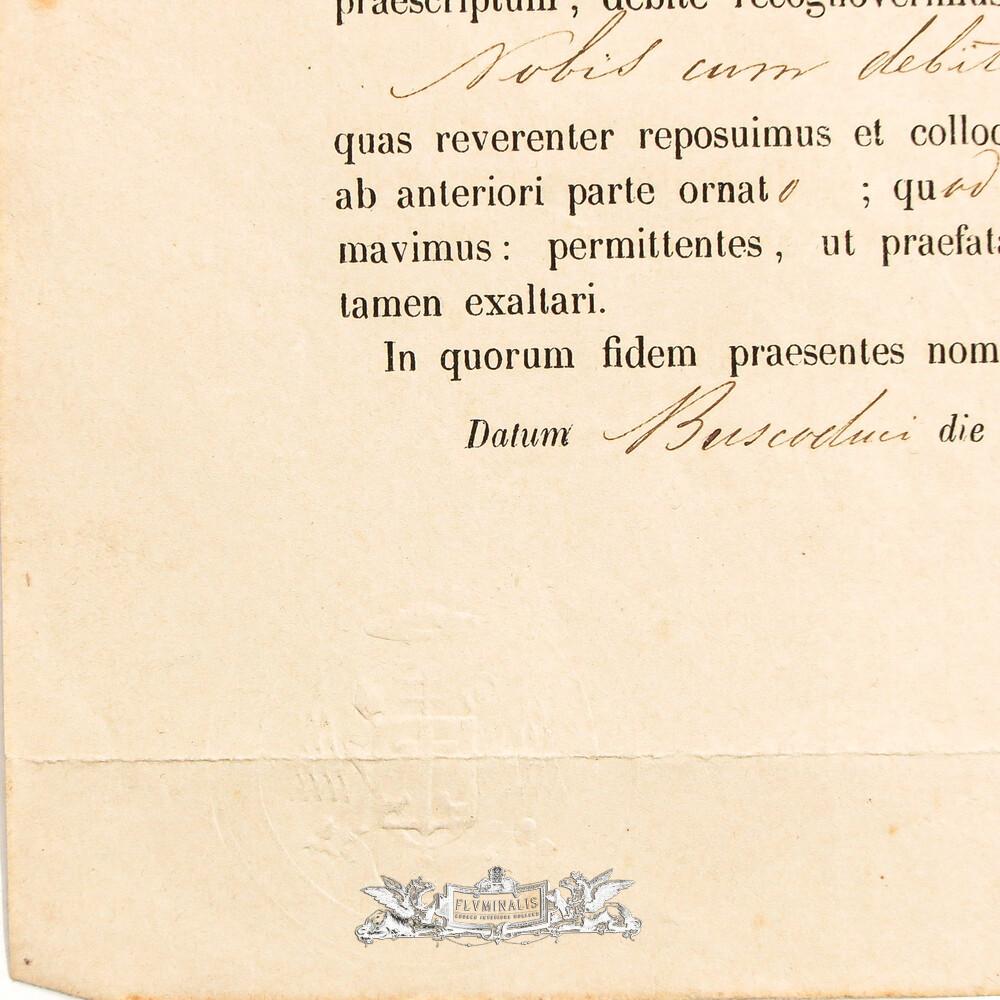 praescriptum, debite recognoverimus
Nobis cum debit
quas reverenter reposuimus et colloc
ab anteriori parte ornato ; quod
mavimus: permittentes, ut praefat
tamen exaltari.
In quorum fidem praesentes nom
Datum Buscoduci die
FLVMINALIS
CHURCH INTERIORS HOLLAND